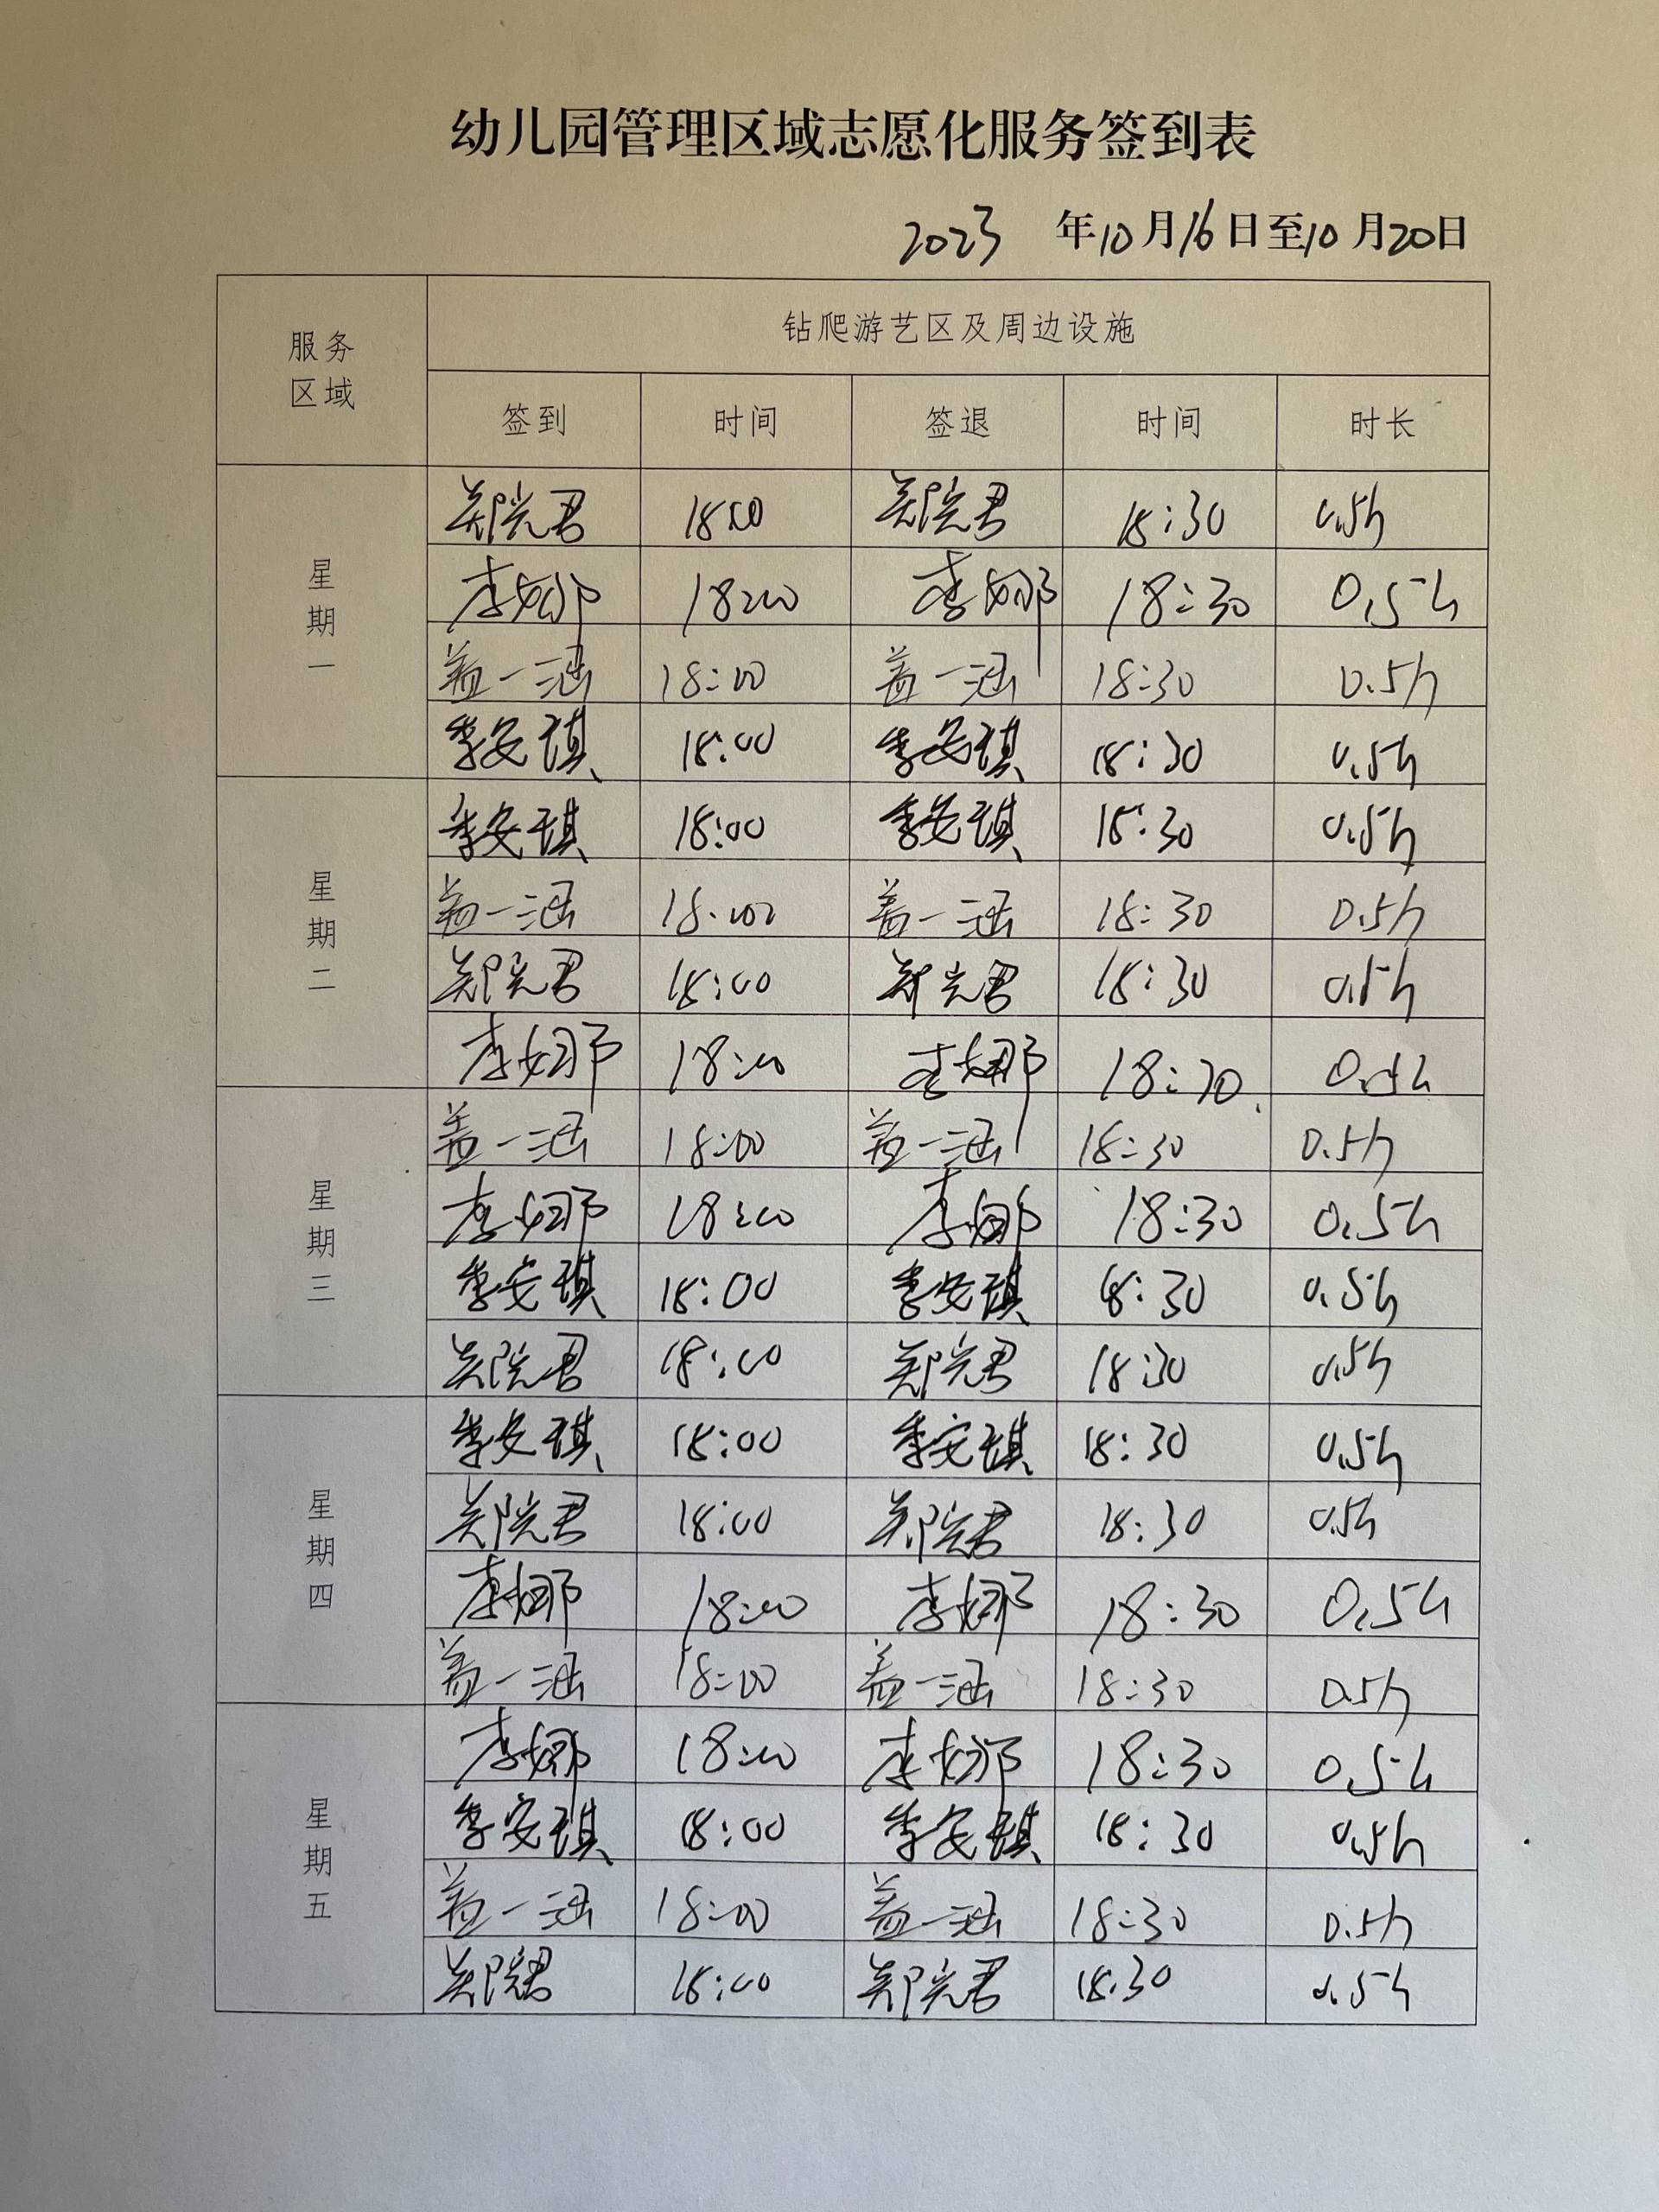 幼儿园管理区域志愿化服务签到表
2023 年10月16日至10月20日
服务区域 钻爬游艺区及周边设施
签到 时间 签退 时间 时长
星期一
郑院君 18:00 郑院君 18:30 0.5h
李娜 18:00 李娜 18:30 0.5h
盖一涵 18:00 盖一涵 18:30 0.5h
李安琪 18:00 李安琪 18:30 0.5h
星期二
李安琪 18:00 李安琪 18:30 0.5h
盖一涵 18:00 盖一涵 18:30 0.5h
郑院君 18:00 郑院君 18:30 0.5h
李娜 18:00 李娜 18:30 0.5h
星期三
盖一涵 18:00 盖一涵 18:30 0.5h
李娜 18:00 李娜 18:30 0.5h
李安琪 18:00 李安琪 18:30 0.5h
郑院君 18:00 郑院君 18:30 0.5h
星期四
李安琪 18:00 李安琪 18:30 0.5h
郑院君 18:00 郑院君 18:30 0.5h
李娜 18:00 李娜 18:30 0.5h
盖一涵 18:00 盖一涵 18:30 0.5h
星期五
李娜 18:00 李娜 18:30 0.5h
李安琪 18:00 李安琪 18:30 0.5h
盖一涵 18:00 盖一涵 18:30 0.5h
郑院君 18:00 郑院君 18:30 0.5h